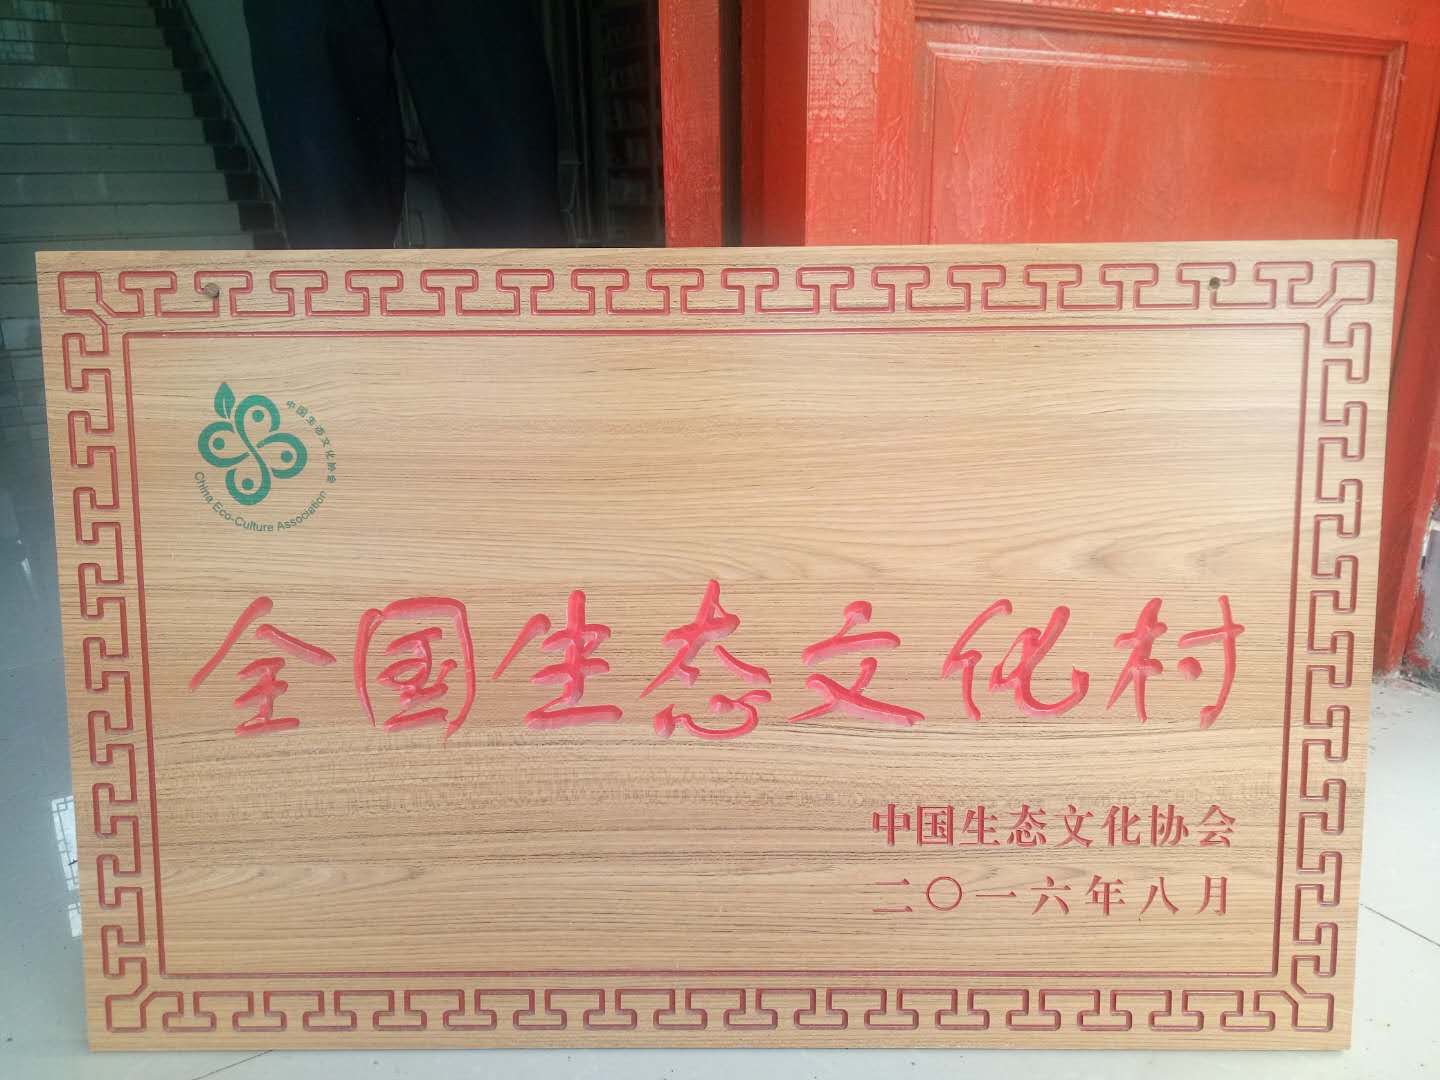 中国生态文化协会
China Eco-Culture Association
全国生态文化村
中国生态文化协会
二〇一六年八月